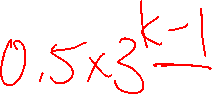 0.5×3^{k-1}